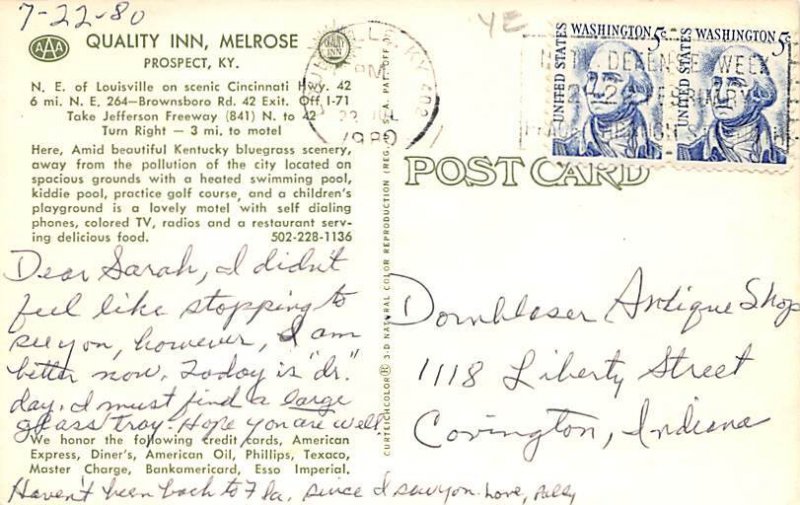 7-22-80
YE
AAA
QUALITY INN, MELROSE
PROSPECT, KY.
QUALITY INN
N. E. of Louisville on scenic Cincinnati Hwy. 42
6 mi. N. E. 264—Brownsboro Rd. 42 Exit. Off I-71
Take Jefferson Freeway (841) N. to 42
Turn Right — 3 mi. to motel
Here, Amid beautiful Kentucky bluegrass scenery,
away from the pollution of the city located on
spacious grounds with a heated swimming pool,
kiddie pool, practice golf course, and a children's
playground is a lovely motel with self dialing
phones, colored TV, radios and a restaurant serv-
ing delicious food. 502-228-1136
Dear Sarah, I didn't
feel like stopping to
see you, however, I am
better now. Today is "dr."
day. I must find a large
glass tray. Hope you are well.
We honor the following credit cards, American
Express, Diner's, American Oil, Phillips, Texaco,
Master Charge, Bankamericard, Esso Imperial.
Haven't been back to Fla. since I saw you. Love, Polly
CURTEICHCOLOR® 3-D NATURAL COLOR REPRODUCTION (REG. U.S.A. PAT. OFF.)
LOUISVILLE, KY 402
PM
22 JUL
1980
UNITED STATES WASHINGTON 5c
UNITED STATES WASHINGTON 5c
DEFENSE WEEK
POST CARD
Dornbloser Antique Shop
1118 Liberty Street
Covington, Indiana